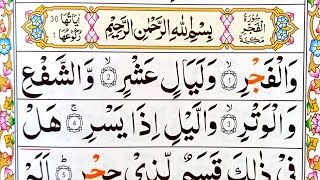 سُوْرَةُ الْفَجْرِ مَكِّيَّةٌ
بِسْمِ اللّٰهِ الرَّحْمٰنِ الرَّحِيْمِ
اٰيَاتُهَا 30
رُكُوْعُهَا 1
وَالْفَجْرِ ۙ 1 وَلَيَالٍ عَشْرٍ ۙ 2 وَّالشَّفْعِ
وَالْوَتْرِ ۙ 3 وَالَّيْلِ اِذَا يَسْرِ ۚ 4 هَلْ
فِيْ ذٰلِكَ قَسَمٌ لِّذِيْ حِجْرٍ ؕ 5 اَلَمْ